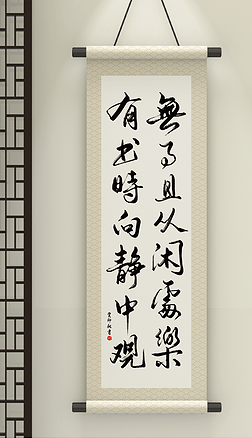 無事且从闲處樂
有书時向静中观